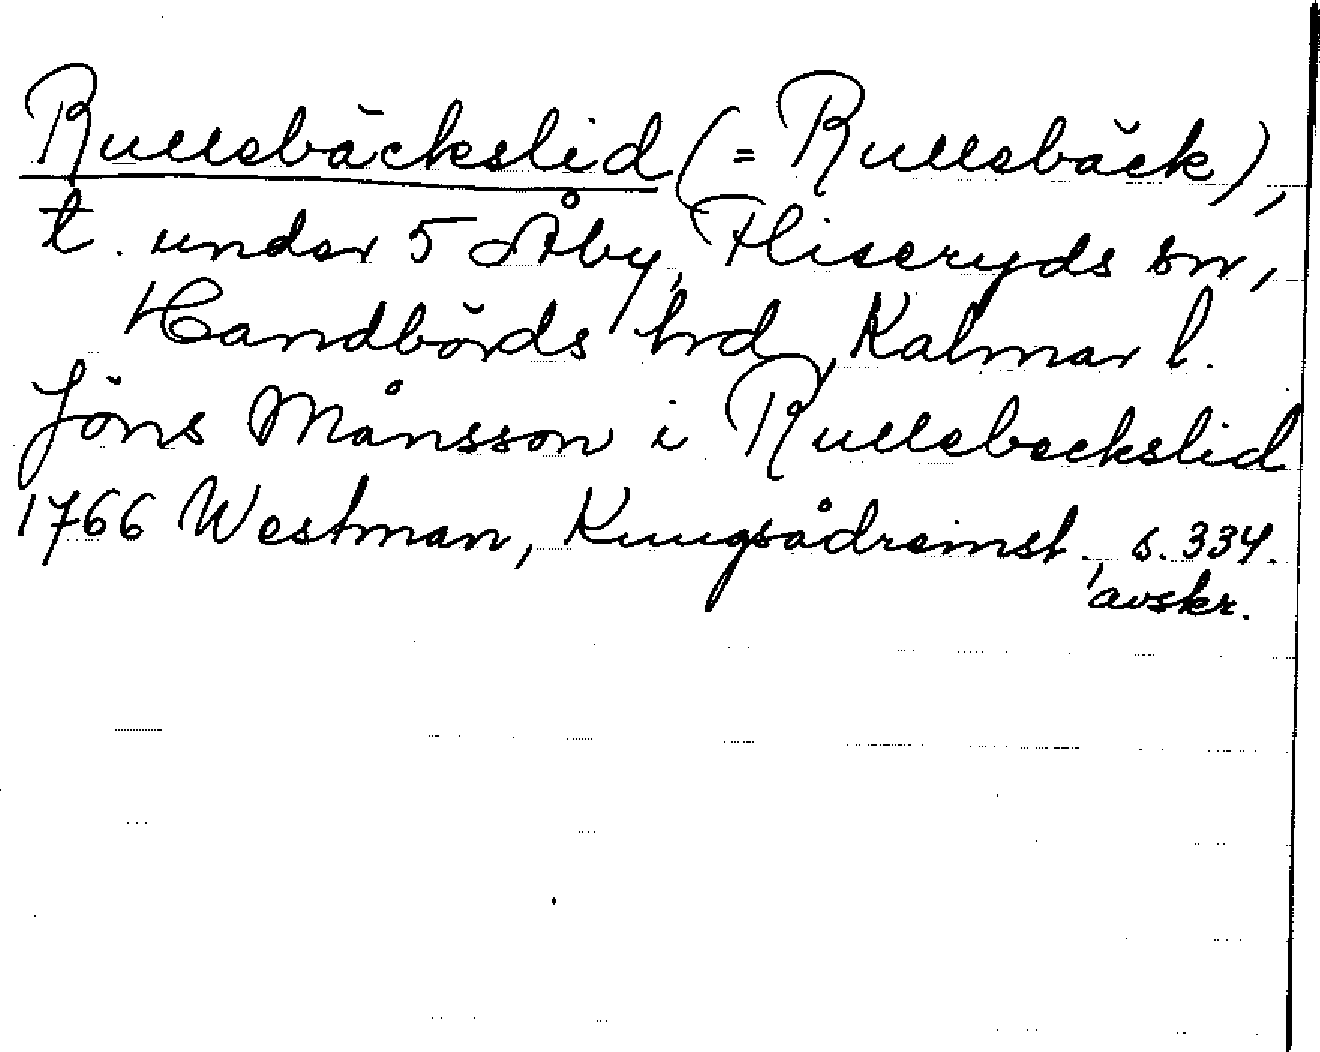 Rullsbäckslid (= Rullsbäck),
t. under 5 Åby, Fliseryds sn,
Handbörds hrd, Kalmar l.
Jöns Månsson i Rullsbeckslid
1766 Westman, Kungsådreinst., s. 334.
avskr.